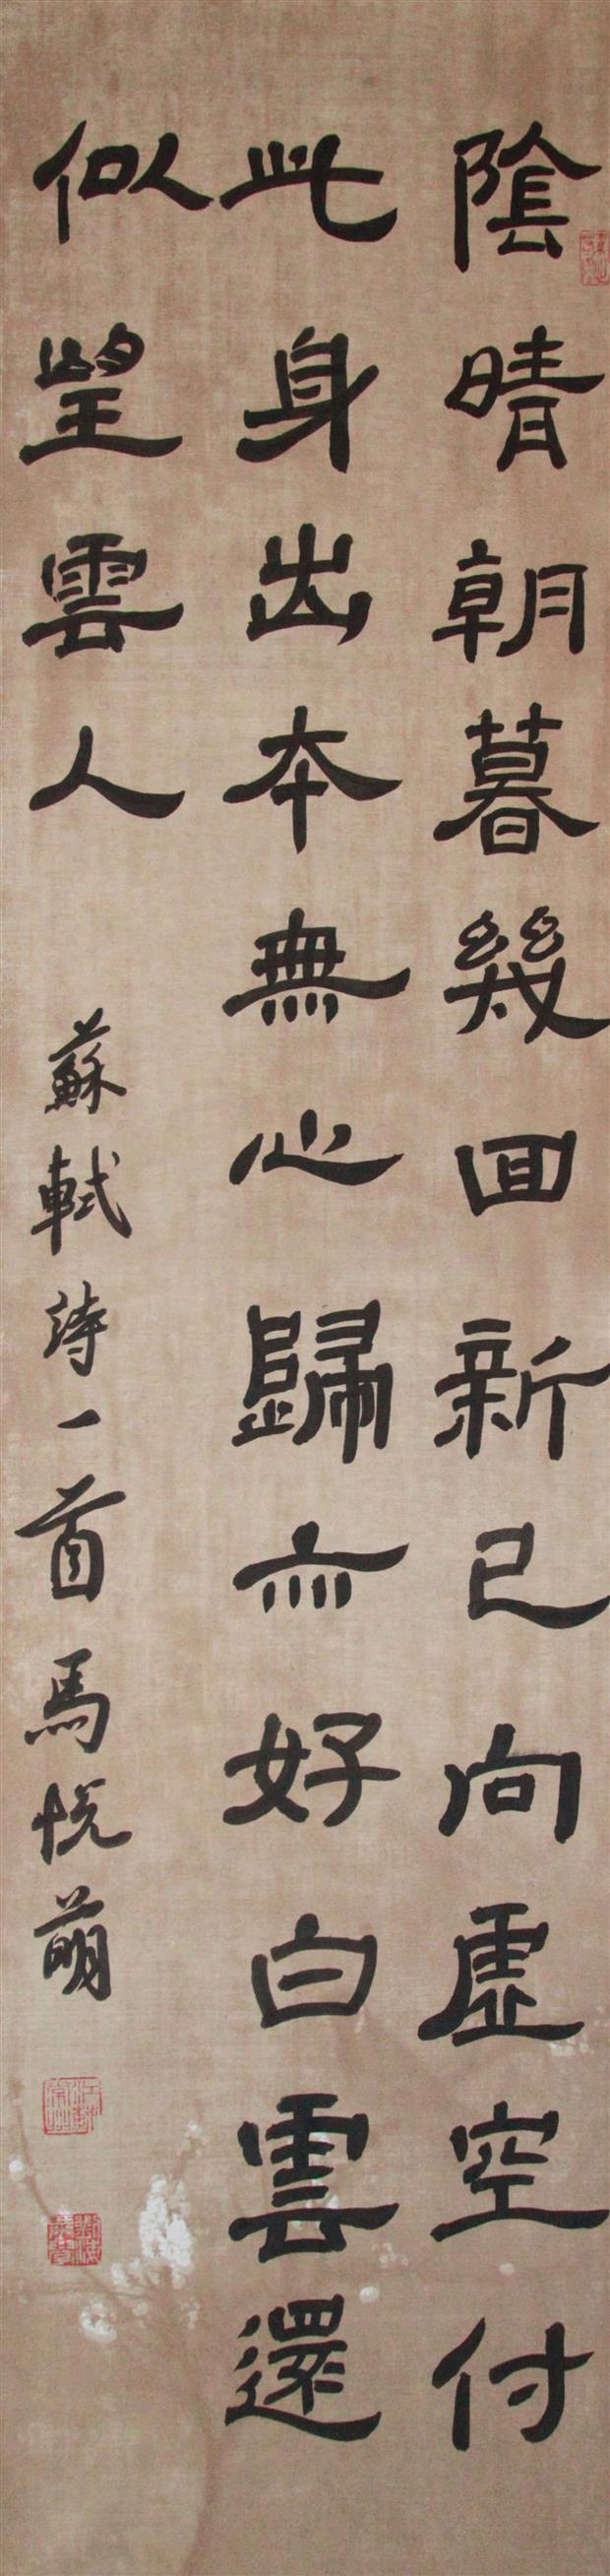 陰晴朝暮幾回新已向虛空付
此身出本無心歸亦好白雲還
似望雲人
蘇軾詩一首馬悅萌